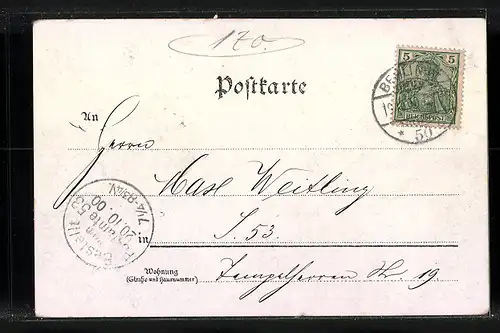 170.
Postkarte
5 5
REICHSPOST
BERLIN
* 50
An
Herrn
Weitling
in S. 53.
Bestellt
vom
Postamte 53
20. 10. 00
7¼-8½N.
Wohnung
(Straße und Hausnummer)
Tempelherren Str. 19